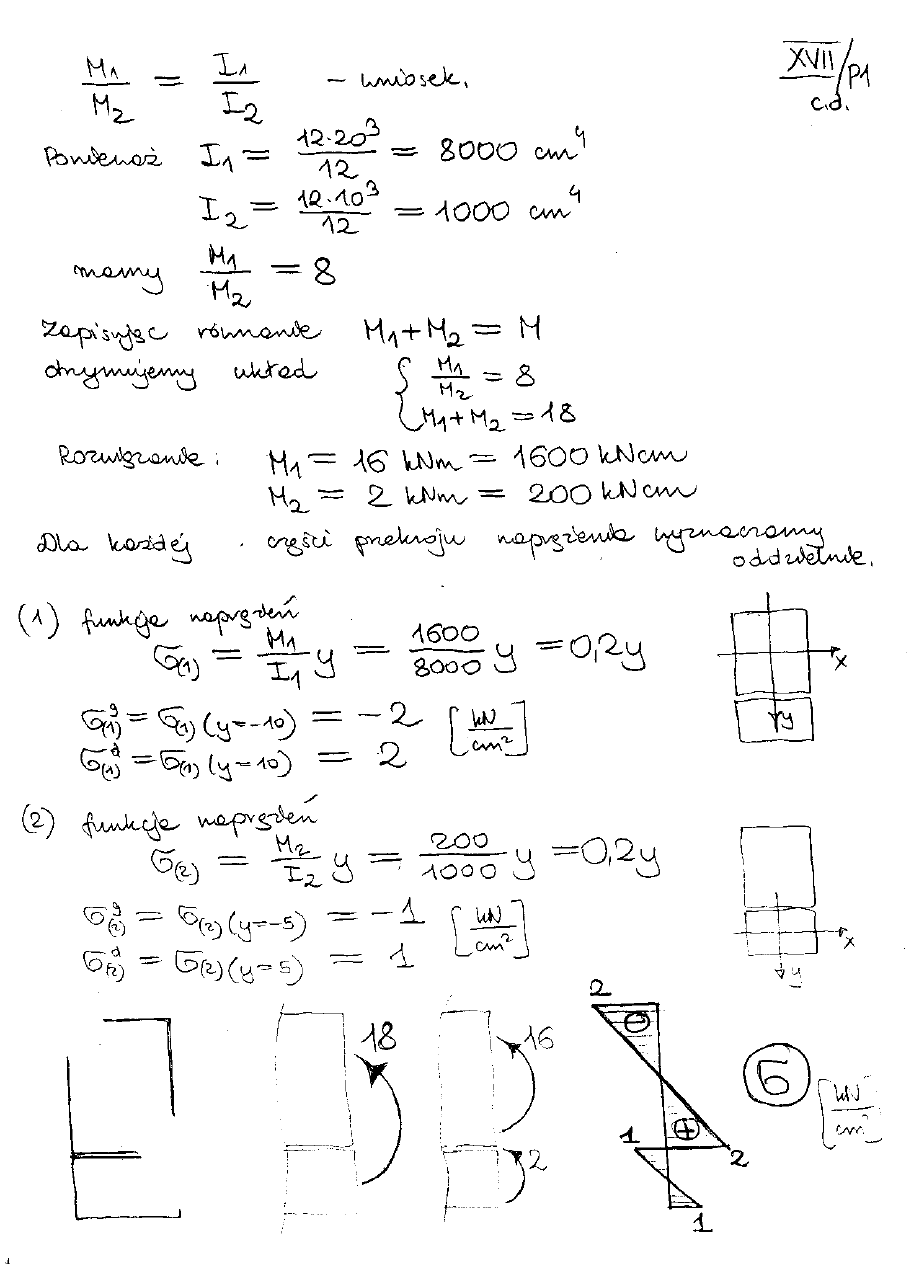 XVII/P1
c.d.
M1/M2 = I1/I2 – wniosek.
Ponieważ I1 = 12·20³/12 = 8000 cm⁴
I2 = 12·10³/12 = 1000 cm⁴
mamy M1/M2 = 8
Zapisując równanie M1+M2 = M
otrzymujemy układ { M1/M2 = 8
M1+M2 = 18
Rozwiązanie: M1 = 16 kNm = 1600 kNcm
M2 = 2 kNm = 200 kNcm
Dla każdej części przekroju naprężenia wyznaczamy
oddzielnie.
(1) funkcja naprężeń
σ(1) = M1/I1 y = 1600/8000 y = 0,2y
x
y
σ(1)^g = σ(1)(y=-10) = -2 [kN/cm²]
σ(1)^d = σ(1)(y=10) = 2
(2) funkcja naprężeń
σ(2) = M2/I2 y = 200/1000 y = 0,2y
σ(2)^g = σ(2)(y=-5) = -1 [kN/cm²]
σ(2)^d = σ(2)(y=5) = 1
x
y
18 16 2 ⊖
2
1 ⊕ 2
1
σ [kN/cm²]